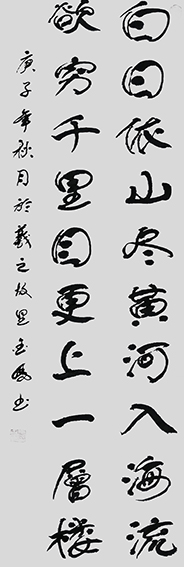 白日依山尽黄河入海流
欲穷千里目更上一层楼
庚子年秋月於羲之故里金凤书